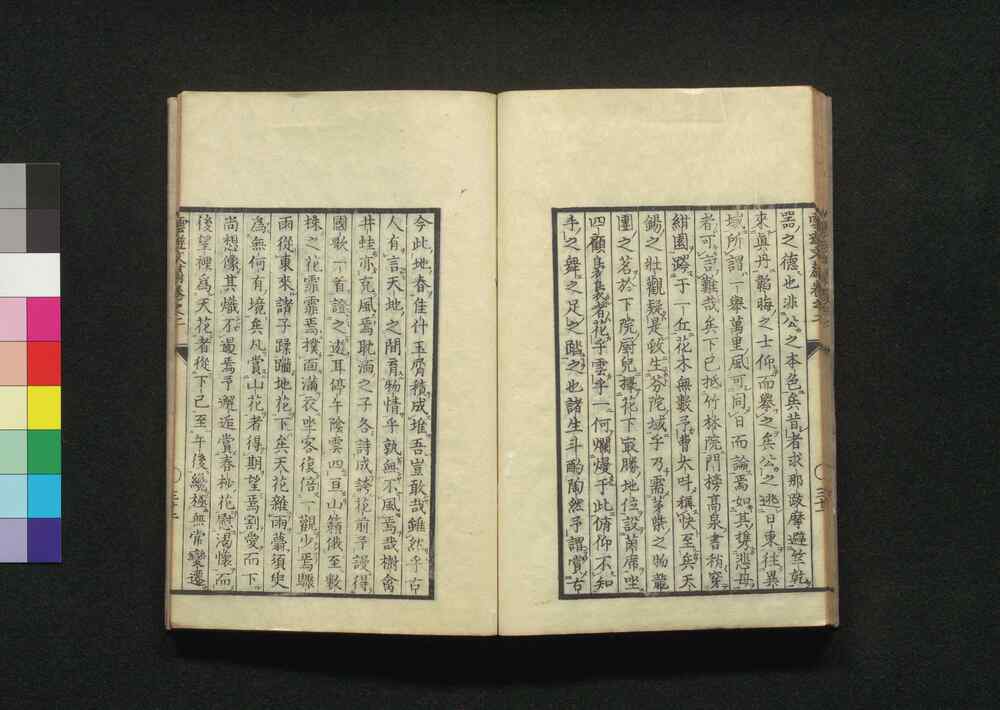 器之德也非公之本色矣昔者求那跋摩避竺乾
來眞丹韜晦之士仰而擧之矣公之逃日東往異
域所謂一擧萬里風可同日而論焉如其悲母
者可苦難哉矣下已抵竹林院門榜高泉書稍穿
紺園躋于一丘花木無數予曹大叫稱快至矣天
錫之壯觀疑是蚊生芬陀域乎乃需茅柴之物龍
團之茗於下院厨兒攘花下最勝地位設菌席坐
四顧裊裊者花乎雲乎一何爛熳于此俯仰不知
手之舞之足之蹈之也諸生斗酌陶然予謂賞古
今此地春隹什玉屑積成堆吾豈敢哉雖然乎古
人有言天地之間育物情乎孰無不風焉哉樹禽
井蛙亦充風焉耽湎之子各詩成誇花前予謾得
國歌一首證之迩耳停午陰雲四亘山籟俄至數
株之花霏霏焉撲面滿衣坐客復倍一觀少焉驟
雨從東來諸子蹂躪地花下矣天花雜雨靄須臾
為無何有境矣凡賞山花者得期望焉割愛而下
尚想像其熾不過焉予邂逅賞春抄花慰渴懷而
後望裡為天花者從下已至午後纔極無常變遷